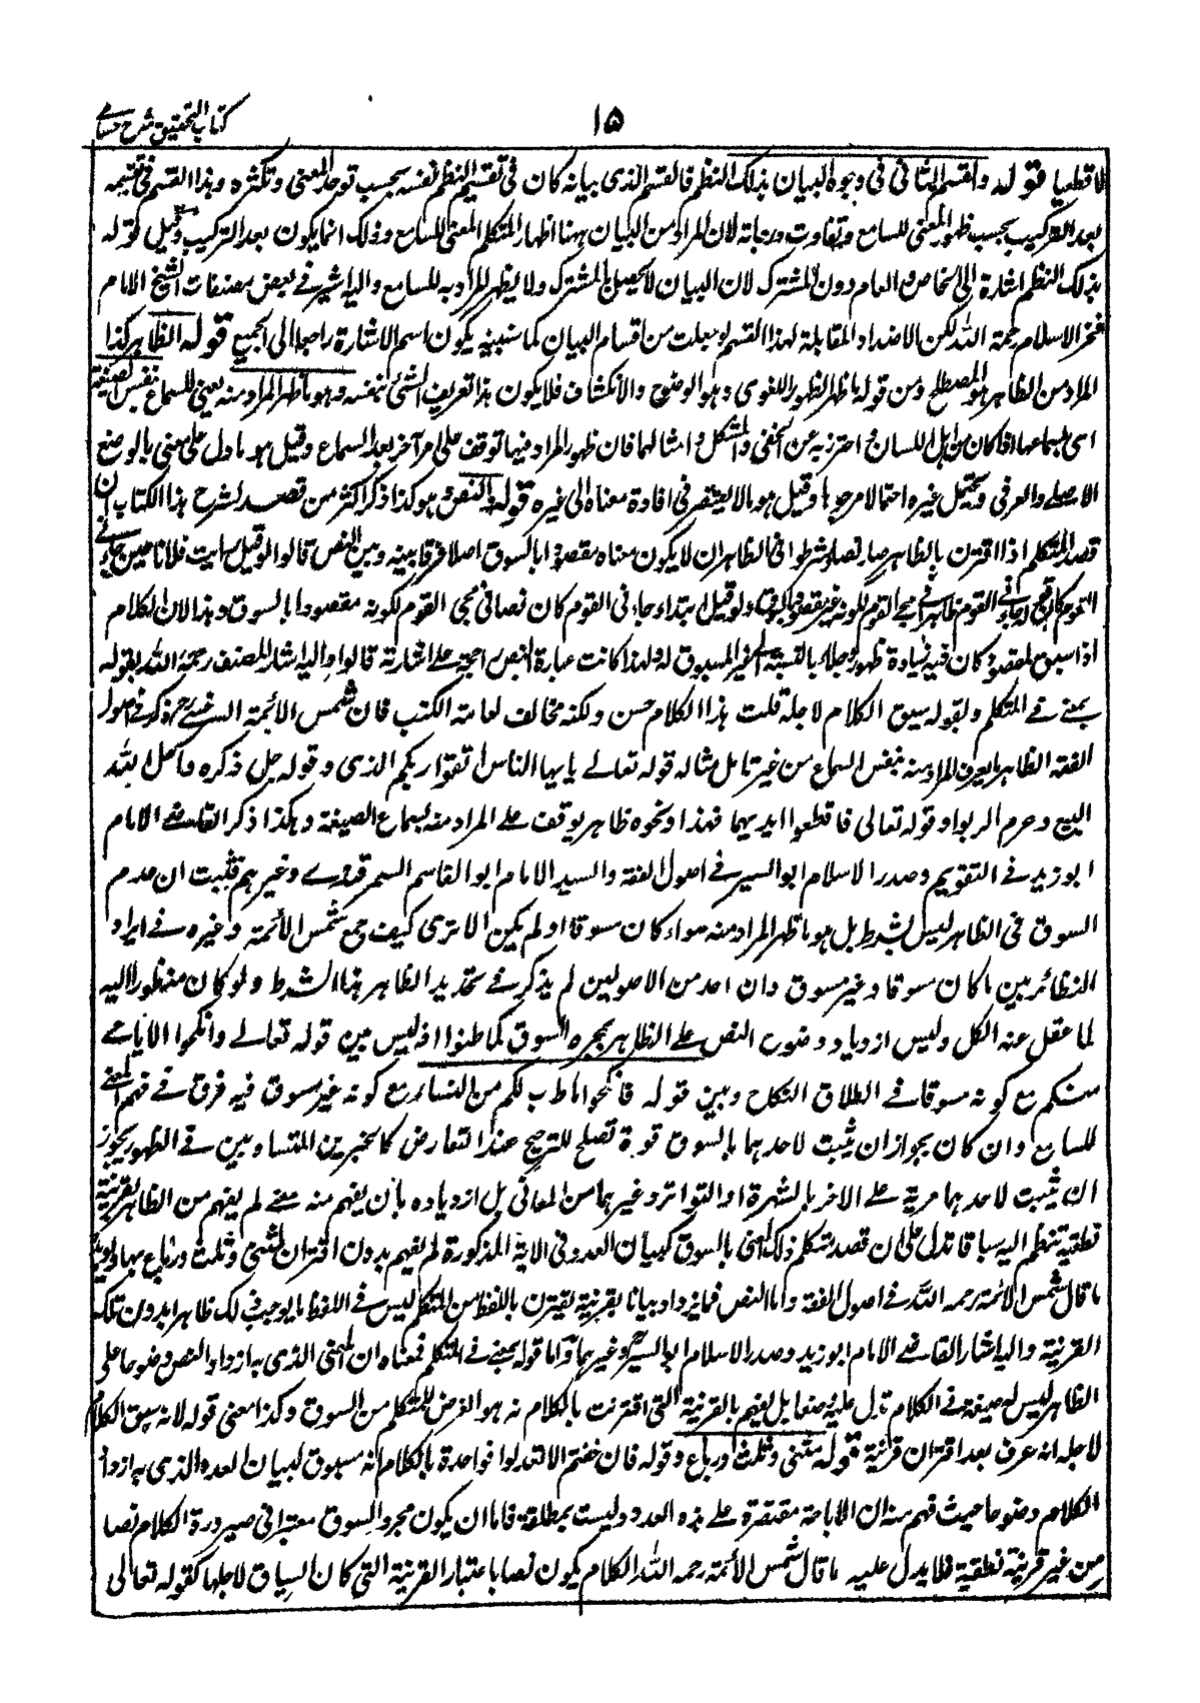 كتاب التحقيق شرح حسامي
١٥
لا قطعيا قوله والقسم الثاني في وجوه البيان بذلك النظم فالقسم الذي بيانه كان في تقسيم النظم نفسه بحسب توحد المعنى وتكثره وهذا القسم في تقسيمه
بعد التركيب بحسب ظهور المعنى للسامع وتفاوت درجاته لان المراد من البيان ههنا اظهار المتكلم المعنى للسامع وذلك انما يكون بعد التركيب وقيل قوله
بذلك النظم اشارة الى الخاص والعام دون المشترك لان البيان لا يحصل بالمشترك ولا يظهر المراد به للسامع واليه اشير في بعض مصنفات الشيخ الامام
فخر الاسلام رحمة الله لكن الاضداد المقابلة لهذا القسم لو جعلت من اقسام البيان كما سنبينه يكون اسم الاشارة راجعا الى الجميع قوله الظاهر كذا
المراد من الظاهر هو المصطلح ومن قوله ما ظهر الظهور اللغوى وهو الوضوح والانكشاف فلا يكون هذا تعريف الشئ بنفسه وهو ما ظهر المراد منه يعنى للسماع بنفس الصيغة
اى بسماعها اذا كان من اهل اللسان احترز به عن الخفى والمشكل وامثالهما فان ظهور المراد فيها توقف على امر آخر بعد السماع وقيل هو ما دل على معنى بالوضع
الاصلے والعرفى ويحتمل غيره احتمالا مرجوحا وقيل هو ما لا يفتقر فى افادة معناه الى غيره قوله والنص وهو كذا ذكر اكثر من تصدے لشرح هذا الكتاب ان
قصد المتكلم اذا اقترن بالظاهر صار نصا وشرطوا فى الظاهر ان لا يكون معناه مقصودا بالسوق اصلا فرقا بينه وبين النص قالوا لو قيل رايت فلانا حين جاءنى
القوم كان قوله جاءنے القوم ظاهرا فے مجئ القوم لكونه غير مقصود بالسوق ولو قيل ابتداء جاءنى القوم كان نصا فى مجئ القوم لكونه مقصودا بالسوق وهذا لان الكلام
اذا سيق لمقصود كان فيه زيادة ظهور وجلاء بالنسبة الى غير المسوق له ولهذا كانت عبارة النص راجحة على اشارته قالوا واليه اشار المصنف رحمة الله بقوله
بمعنے فے المتكلم وبقوله سيق الكلام لاجله قلت هذا الكلام حسن ولكنه مخالف لعامة الكتب فان شمس الأئمة السرخسے رح ذكر فے اصول
الفقه الظاهر ما يعرف المراد منه بنفس السماع من غير تامل مثاله قوله تعالے يا ايها الناس اتقوا ربكم الذى وقوله جل ذكره واحل الله
البيع وحرم الربوا وقوله تعالى فاقطعوا ايديهما فهذا ونحوه ظاهر يوقف على المراد منه بسماع الصيغة وهكذا ذكر القاضے الامام
ابو زيد فے التقويم وصدر الاسلام ابو اليسر فے اصول الفقه والسيد الامام ابو القاسم السمرقندے وغيرهم فثبت ان عدم
السوق فى الظاهر ليس بشرط بل هو ما ظهر المراد منه سواء كان مسوقا او لم يكن الا ترى كيف جمع شمس الأئمة وغيره فے ايراد
النظائر بين ما كان مسوقا وغير مسوق وان احد من الاصوليين لم يذكر فے تحديد الظاهر هذا الشرط ولو كان منظورا اليه
لما غفل عنه الكل وليس ازدياد وضوح النص على الظاهر بمجرد السوق كما ظنوا اذ ليس بين قوله تعالے وانكحوا الاياميے
منكم مع كونه مسوقا فے اطلاق النكاح وبين قوله فانكحوا ما طاب لكم من النساء مع كونه غير مسوق فيه فرق فے فهم المعنے
للسامع وان كان يجوز ان يثبت لاحدهما بالسوق قوة تصلح للترجيح عند التعارض كالخبرين المتساويين فے الظهور يجوز
ان يثبت لاحدهما مزية على الاخر بالشهرة او التواتر وغيرهما من المعانى بل ازدياده بان يفهم منه معنے لم يفهم من الظاهر بقرينة
نطقية تنظم اليه سباقا تدل على ان قصد المتكلم ذلك المعنى بالسوق كبيان العدد فى الاية المذكورة لم يفهم بدون اقتران مثنى وثلث ورباع بها وليه
ما قال شمس الأئمة رحمه الله فے اصول الفقه واما النص فما يزداد بيانا بقرينة يقترن باللفظ من المتكلم ليس فے اللفظ ما يوجب ذلك ظاهرا بدون تلك
القرينة واليه اشار القاضے الامام ابو زيد وصدر الاسلام ابو اليسر وغيرهما واما قوله بمعنے فے المتكلم فمعناه ان المعنى الذى به ازداد النص وضوحا على
الظاهر ليس له صيغة فے الكلام تدل عليه وضعا بل يفهم بالقرينة التى اقترنت بالكلام نه هو الغرض للمتكلم من السوق وكذا معنى قوله لانه سيق الكلام
لاجله انه عرف بعد اقتران قرينة قوله مثنى وثلث ورباع وقوله فان خفتم الا تعدلوا فواحدة بالكلام انه مسوق لبيان العدد الذى به ازداد
الكلام وضوحا حيث فهم منه ان الاباحة مقتصرة على هذه العدد وليست بمطلقة فاما ان يكون مجرد السوق معتبرا فى صيرورة الكلام نصا
من غير قرينة نطقية فلا يدل عليه ما قال شمس الأئمة رحمه الله الكلام يكون نصا باعتبار القرينة التى كان السياق لاجلها كقوله تعالى